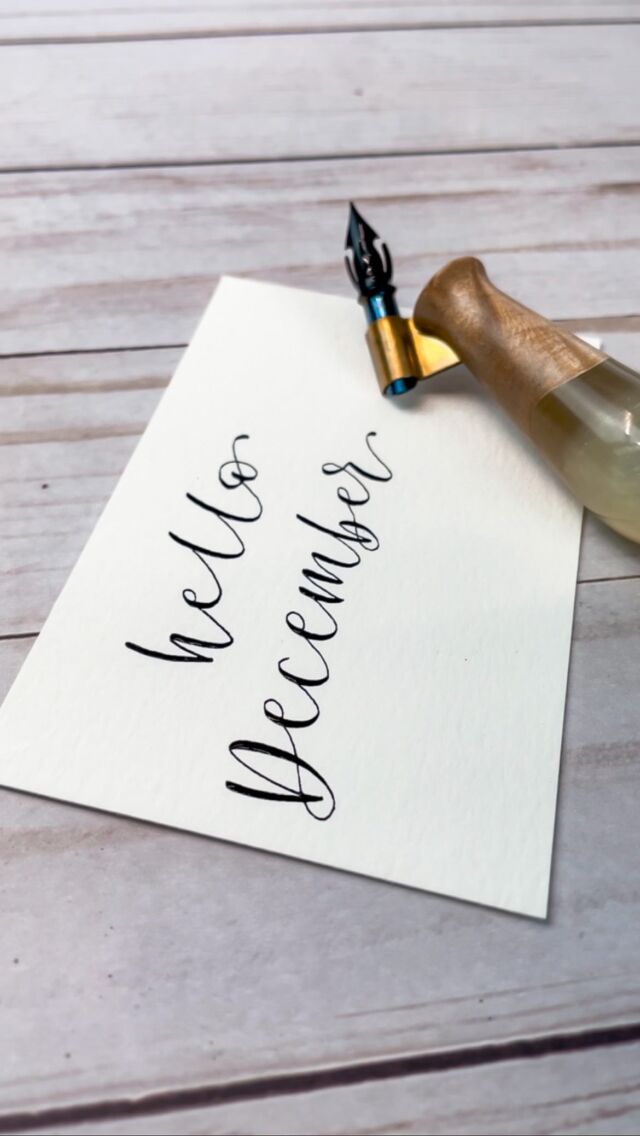 hello
December